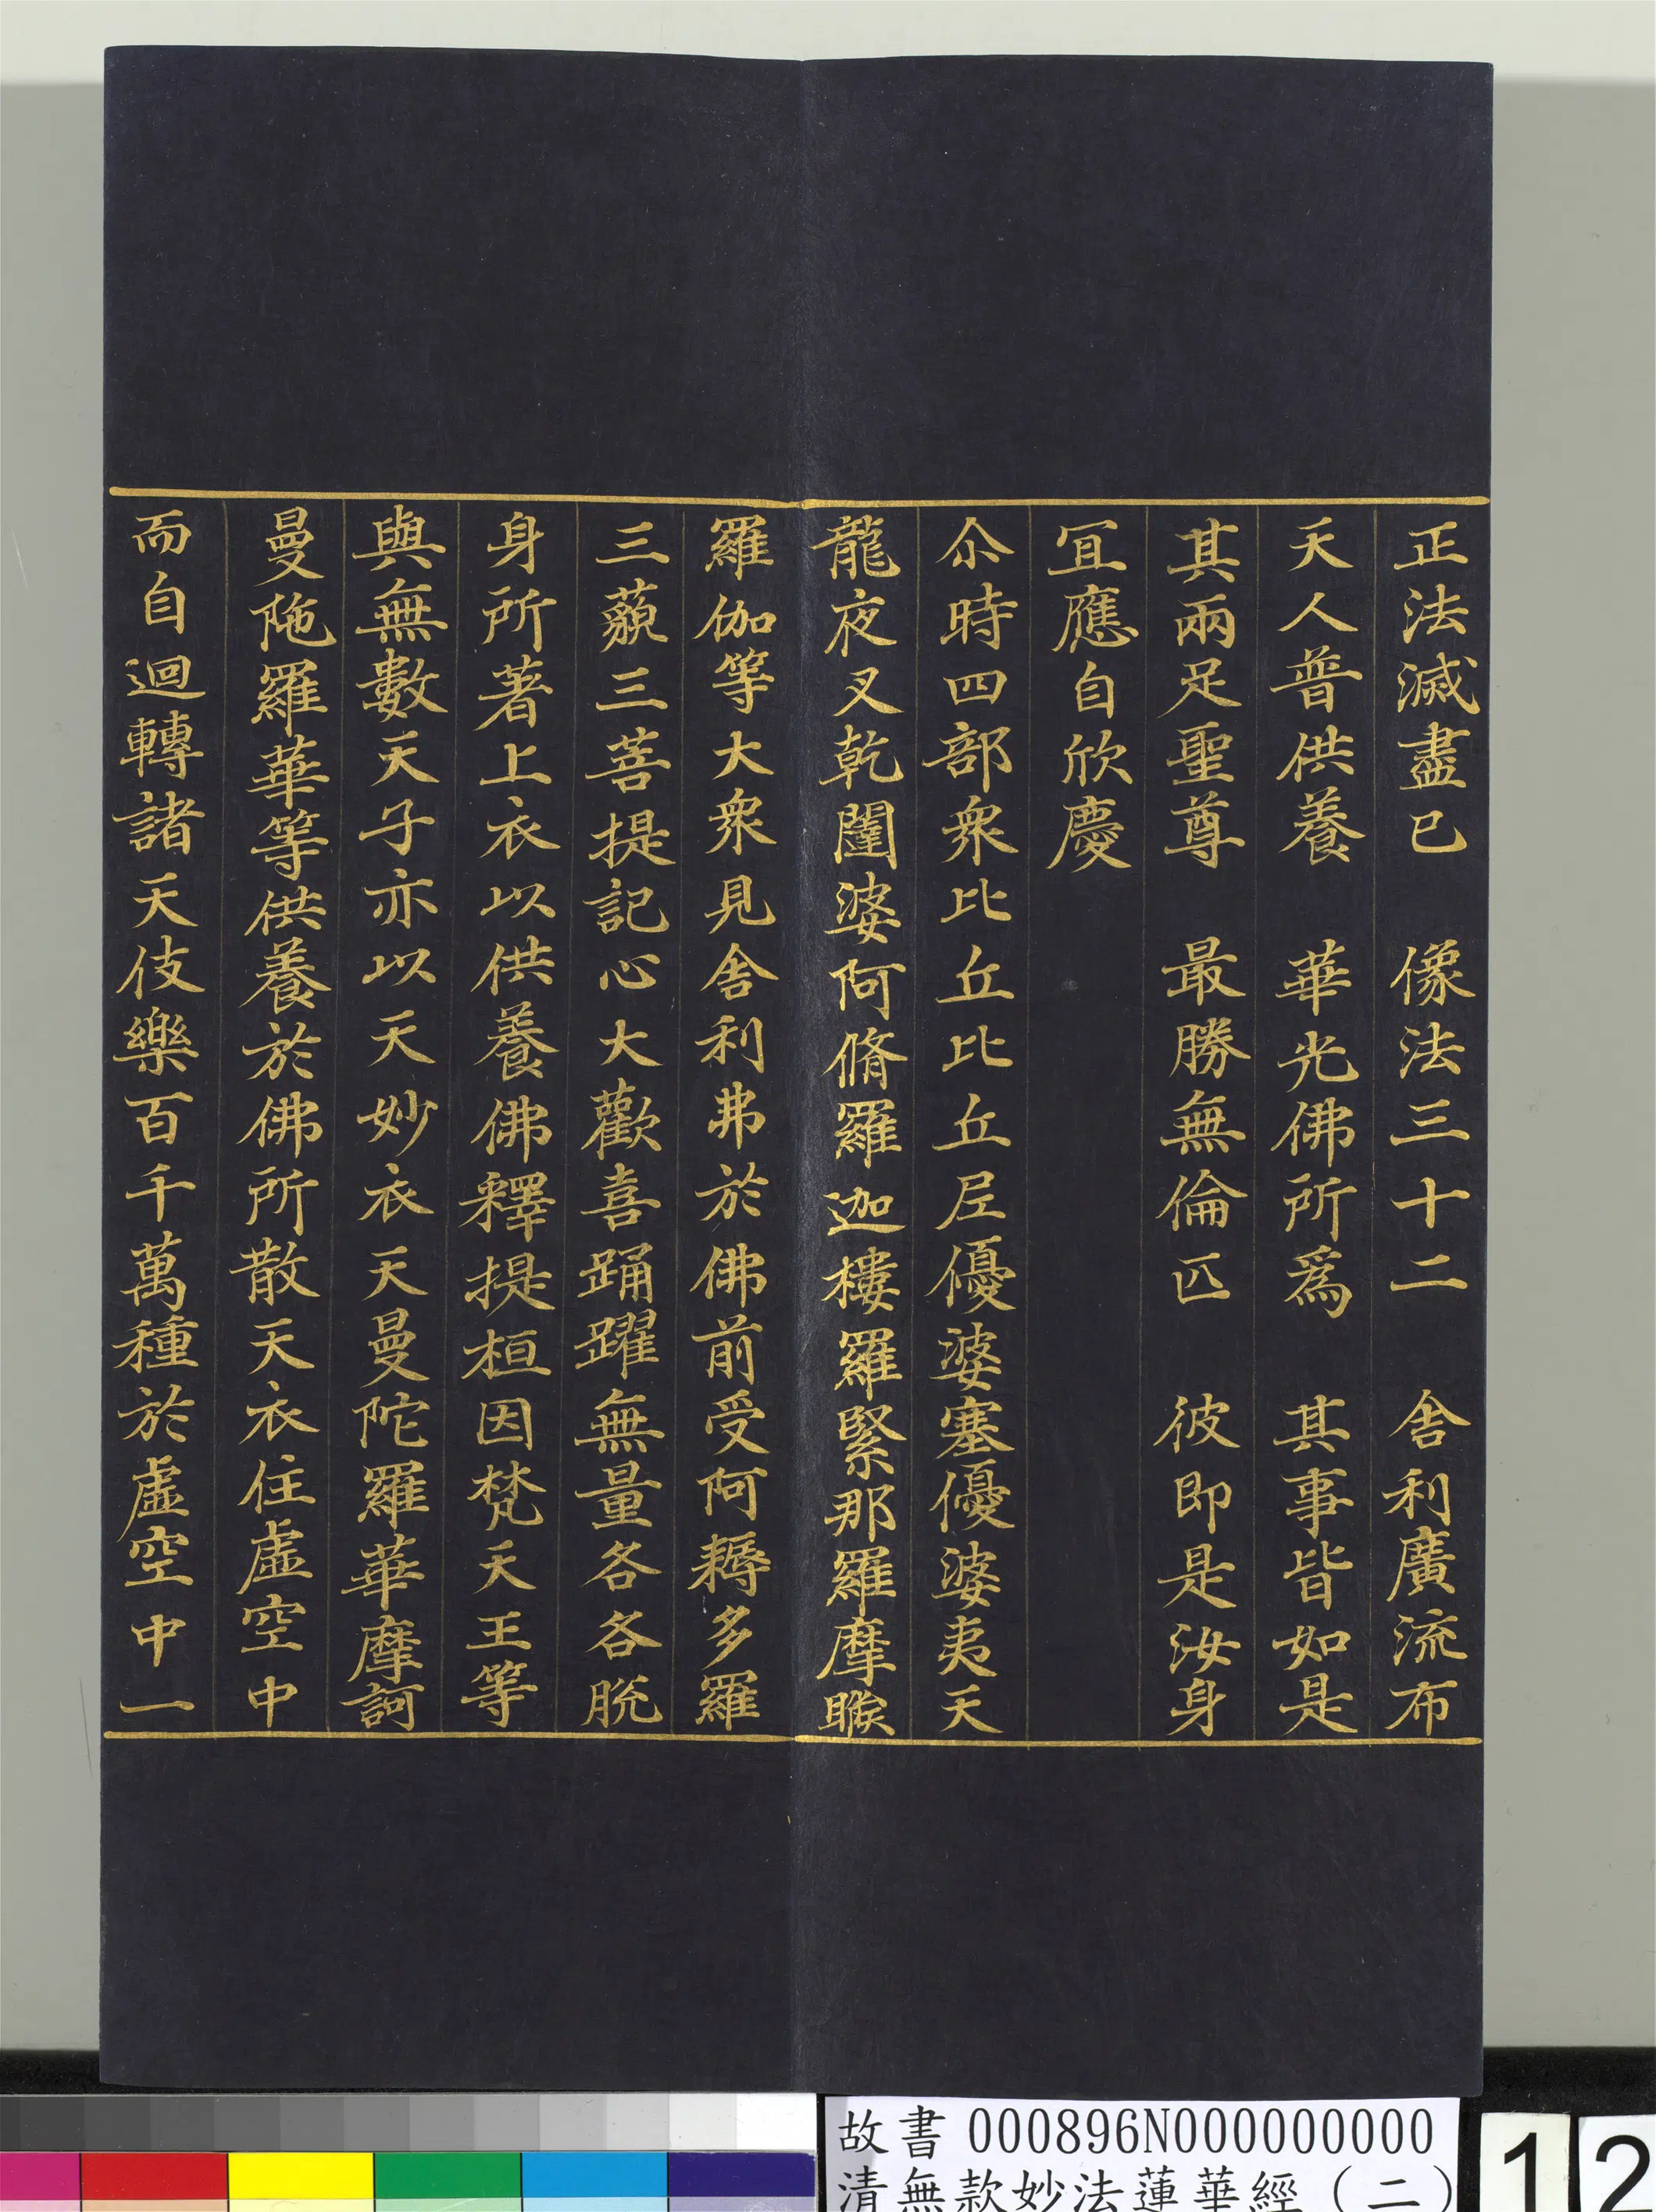 正法滅盡已　像法三十二　舎利廣流布
天人普供養　華光佛所爲　其事皆如是
其兩足聖尊　最勝無倫匹　彼即是汝身
冝應自欣慶
尒時四部衆比丘比丘尼優婆塞優婆夷天
龍夜叉乾闥婆阿脩羅迦樓羅緊那羅摩睺
羅伽等大衆見舎利弗於佛前受阿耨多羅
三藐三菩提記心大歡喜踊躍無量各各脫
身所著上衣以供養佛釋提桓因梵天王等
與無數天子亦以天妙衣天曼陀羅華摩訶
曼陁羅華等供養於佛所散天衣住虛空中
而自迴轉諸天伎樂百千萬種於虛空中一
故書 000896N000000000
清無款妙法蓮華經（二）
12